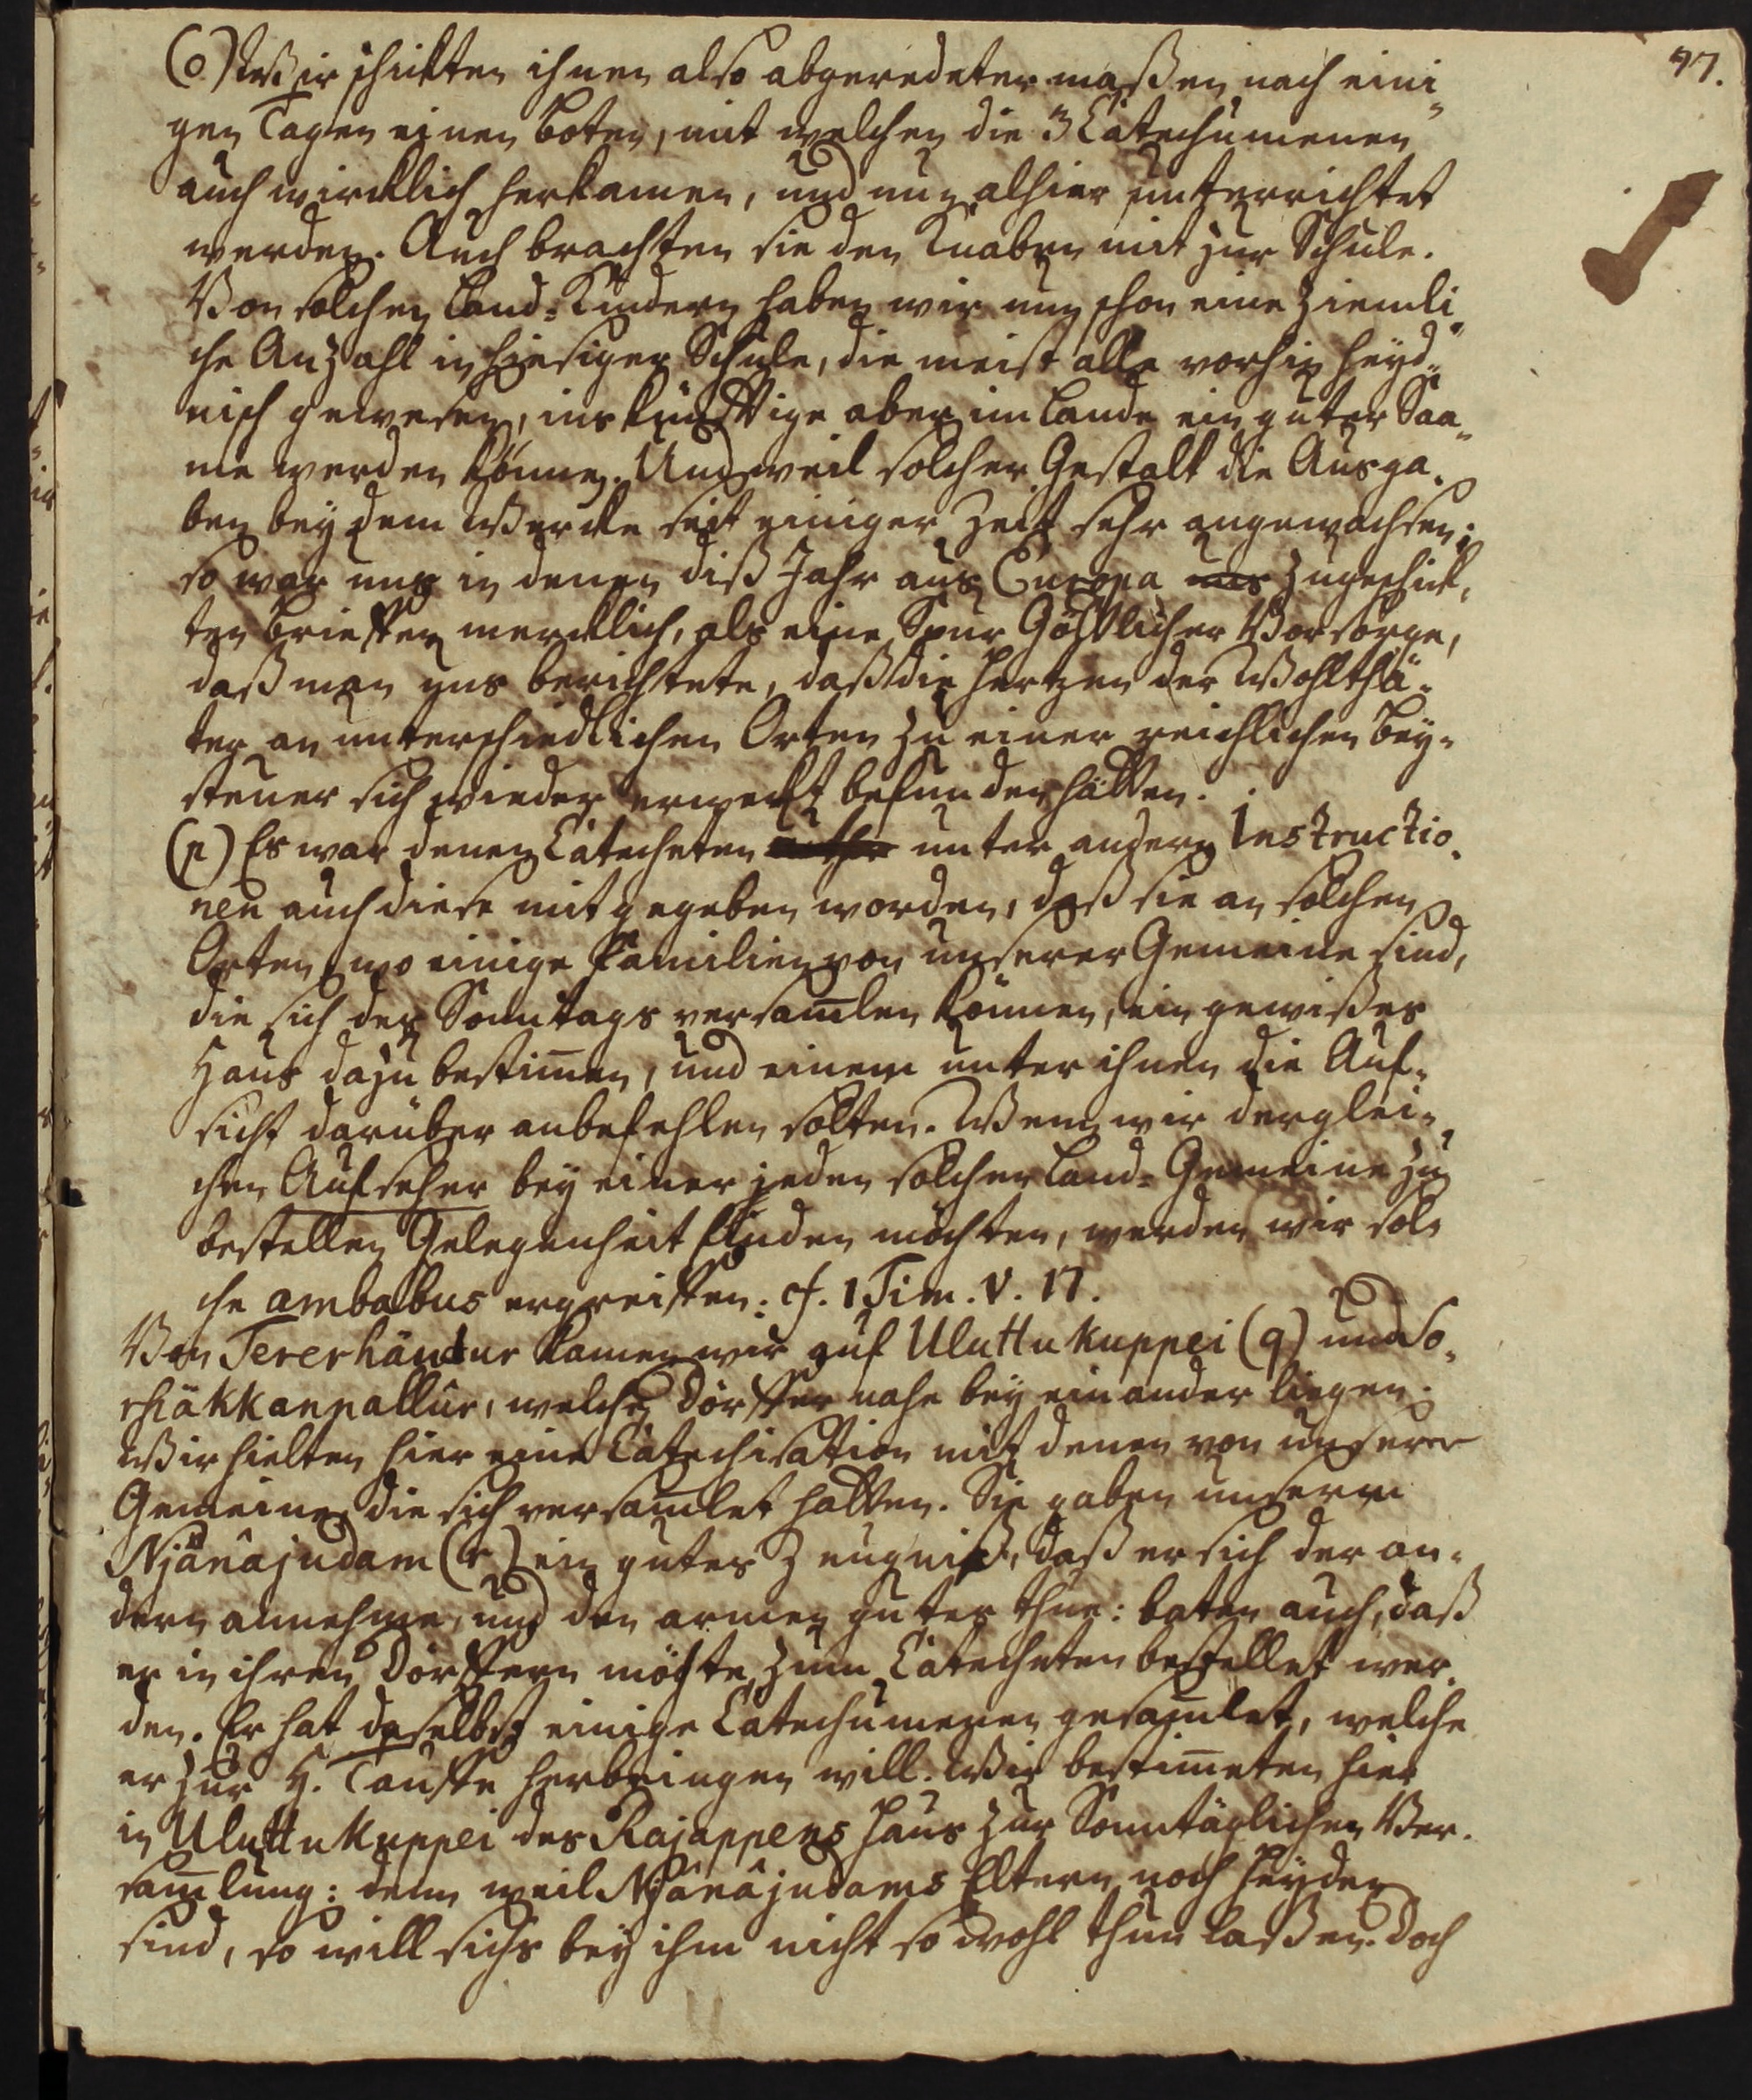 97.
(o) Wir schickten ihnen also abgeredeter maßen nach eini-
gen Tagen einen Boten, mit welchen die 3 Catechumenen
auch wircklich herkamen, und nun alhier unterrichtet
werden. Auch brachten sie den Knaben mit zur Schule.
Von solchen Land-Kindern haben wir nun schon eine ziemli-
che Anzahl in hiesiger Schule, die meist alle vorhin heyd-
nisch gewesen, ins künfftige aber im Lande ein guter Saa-
me werden können. Und weil solcher Gestalt die Ausga-
ben bey dem Wercke seit einiger Zeit sehr angewachsen;
so war uns in denen diß Jahr aus Europa uns zugeschick-
ten Brieffen mercklich, als eine Spur Göttlicher Vorsorge,
daß man uns berichtete, daß die Hertzen der Wohlthä-
ter an unterschiedlichen Orten zu einer reichlichen Bey-
steuer sich wieder erweckt befunden hätten.
(p) Es war denen Catecheten unter andern Instructio-
nen auch diese mit gegeben worden, daß sie an solchen
Orten, wo einige Familien von unserer Gemeine sind,
die sich des Sonntags versam̅len können, ein gewißes
Haus dazu bestim̅en, und einem unter ihnen die Auf-
sicht darüber anbefehlen solten. Wenn wir derglei-
chen Aufseher bey einer jeden solcher Land-Gemeine zu
bestellen Gelegenheit finden möchten, werden wir sol-
che ambabus ergreiffen: cf. 1 Tim. V. 17.
Von Tererhändur kamen wir auf Uluttukuppei (q) und So-
rhäkkanpallûr, welche Dörffer nahe bey einander liegen.
Wir hielten hier eine Catechisation mit denen von unserer
Gemeine, die sich versam̅let hatten. Sie gaben unserm
Njânâjudam (r) ein gutes Zeugniß, daß er sich der an-
dern annehme, und den armen gutes thue: baten auch, daß
er in ihren Dörffern möchte zum Catecheten bestellet wer-
den. Er hat daselbst einige Catechumenen gesam̅let, welche
er zur H. Tauffe herbringen will. Wir bestim̅eten hier
in Uluttukuppei des Rajappens Haus zur Sonntäglichen Ver-
sam̅lung: denn weil Njânâjudams Eltern noch Heyden
sind, so will sichs bey ihm nicht so wohl thun laßen. Doch